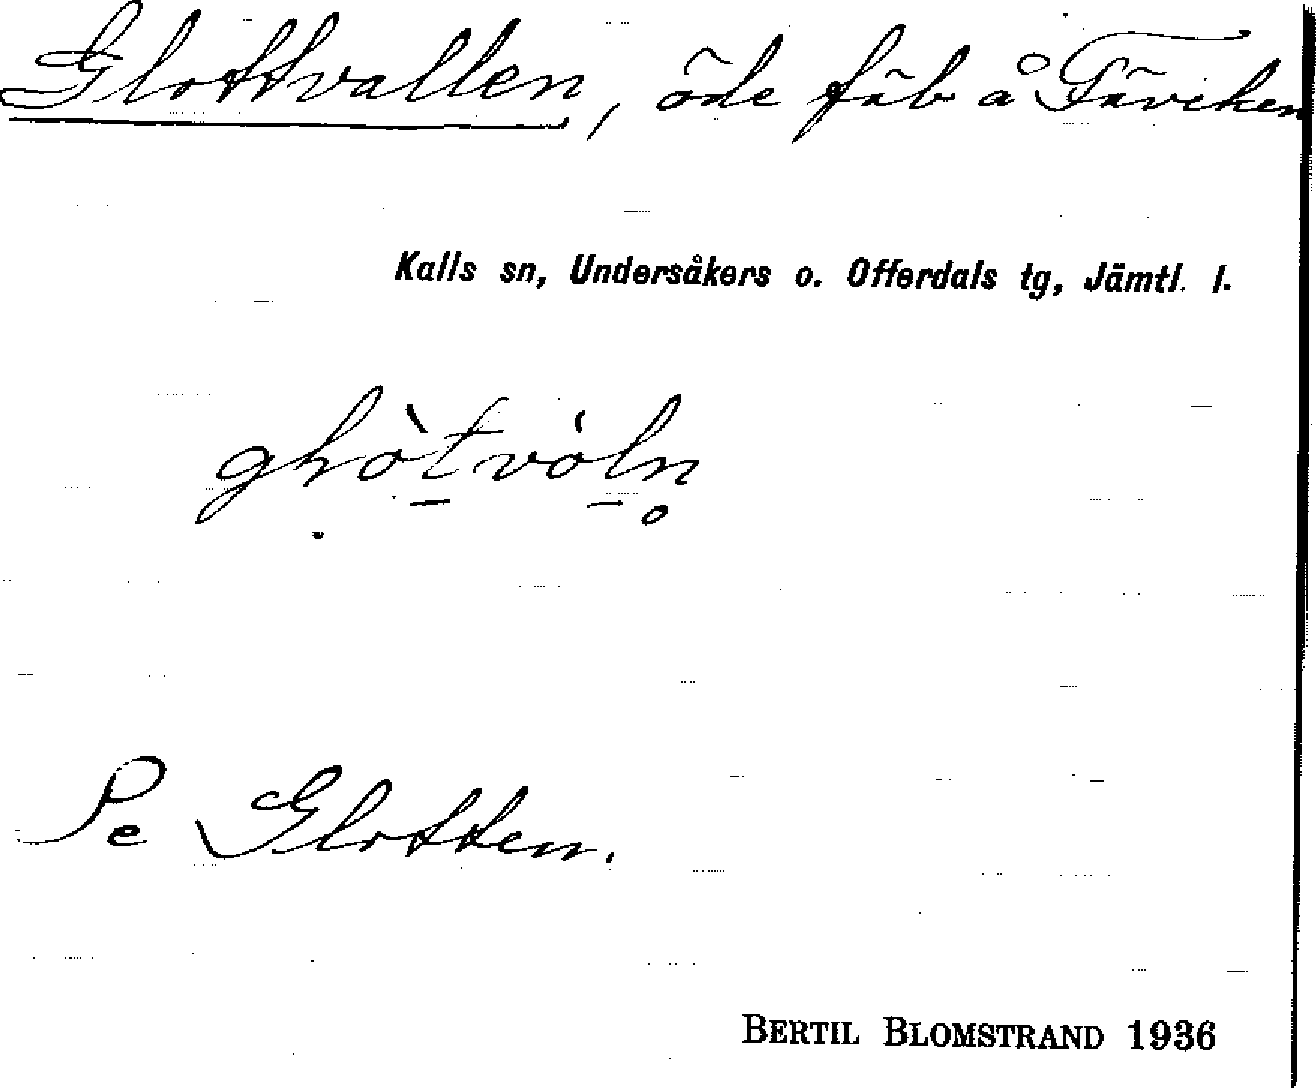 Glottvallen, öde fäb å Fäviken
Kalls sn, Undersåkers o. Offerdals tg, Jämtl. l.
Se Glotten.
BERTIL BLOMSTRAND 1936